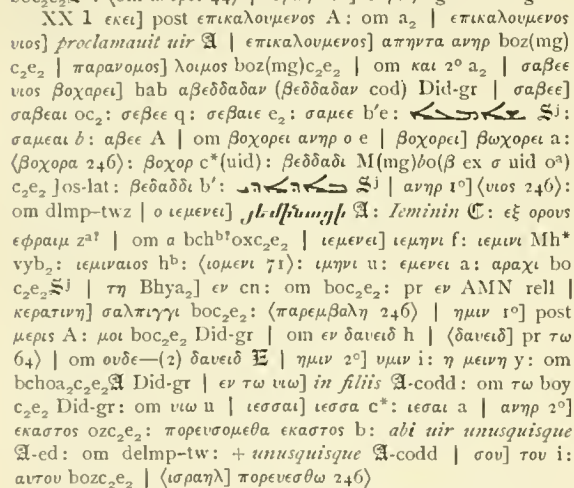 XX 1 εκει] post επικαλουμενος A: om a₂ | επικαλουμενος
υιος] proclamauit uir 𝔄 | επικαλουμενος] απηντα ανηρ boz(mg)
c₂e₂ | παρανομος] λοιμος boz(mg)c₂e₂ | om και 2° a₂ | σαβεε
υιος βοχορει] hab αβεδδαδαν (βεδδαδαν cod) Did-gr | σαβεε]
σαβεαι oc₂: σεβεε q: σεβαιε e₂: σαμεε b'e: 𝔖j:
σαμεαι b: αβεε A | om βοχορει ανηρ o e | βοχορει] βωχορει a:
⟨βοχορα 246⟩: βοχορ c*(uid): βεδδαδι M(mg)bo(β ex σ uid oᵃ)
c₂e₂ Jos-lat: βεδαδδι b': 𝔖j | ανηρ 1°] ⟨υιος 246⟩:
om dlmp–twz | ο ιεμενει] 𝔄: Ieminin ℭ: εξ ορους
εφραιμ zᵃ? | om ο bchᵇ?oxc₂e₂ | ιεμενει] ιεμηνι f: ιεμινι Mh*
vyb₂: ιεμιναιος hᵇ: ⟨ιομενι 71⟩: ιμηνι u: εμενει a: αραχι bo
c₂e₂𝔖j | τη Bhya₂] εν cn: om boc₂e₂: pr εν AMN rell |
κερατινη] σαλπιγγι boc₂e₂: ⟨παρεμβαλη 246⟩ | ημιν 1°] post
μερις A: μοι boc₂e₂ Did-gr | om εν δαυειδ h | ⟨δαυειδ] pr τω
64⟩ | om ουδε—(2) δαυειδ 𝔈 | ημιν 2°] υμιν i: η μεινη y: om
bchoa₂c₂e₂𝔄 Did-gr | εν τω υιω] in filiis 𝔄-codd: om τω boy
c₂e₂ Did-gr: om υιω u | ιεσσαι] ιεσσα c*: ιεσαι a | ανηρ 2°]
εκαστος ozc₂e₂: πορευσομεθα εκαστος b: abi uir unusquisque
𝔄-ed: om delmp–tw: + unusquisque 𝔄-codd | σου] του i:
αυτου bozc₂e₂ | ⟨ισραηλ] πορευεσθω 246⟩